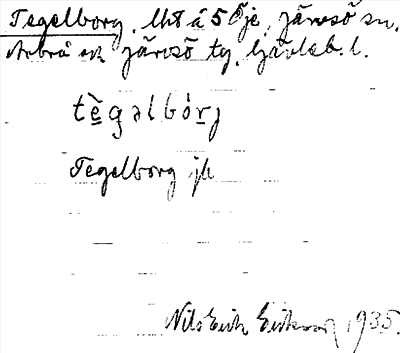 Tegelborg, lht å 5 Öje, Järvsö sn,
Arbrå och Järvsö tg, Gävleb. l.
tè̱gəlbóṟj
Tegelborg jb
Nils Erik Erikson 1935.